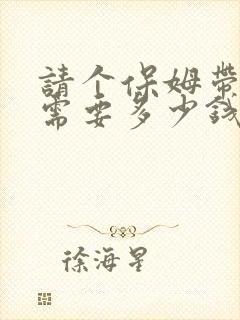 請个保姆帶
需要多少钱
徐海星